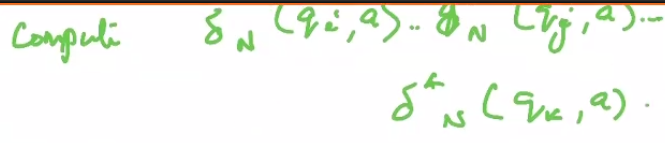 Compute δ_N (q_i, a) .. δ_N (q_j, a) ...
δ^*_N (q_k, a) .